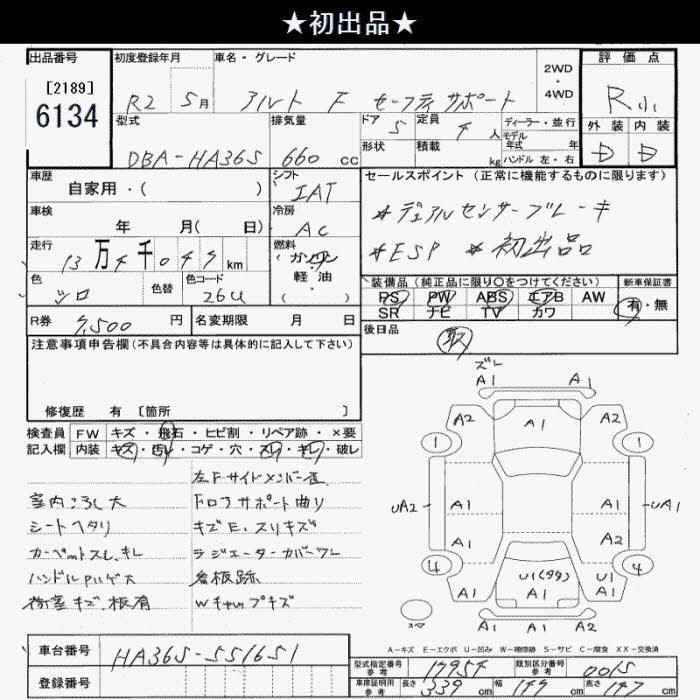 ★初出品★
出品番号
[2189]
6134
初度登録年月
R2 5月
車名・グレード
アルト F セーフティサポート
2WD
・
4WD
評価点
R小
外装 内装
D D
型式
DBA-HA36S
排気量
660 cc
ドア 5
定員 4 人
形状
積載 kg
ディーラー・並行
モデル
年式 年
ハンドル 左・右
車歴
自家用・( )
シフト
IAT
車検
年 月( 日)
冷房
AC
走行
13万4千047km
燃料
ガソリン
軽油
( )
色
シロ
色替
色コード
26U
R券
7,500 円
名変期限 月 日
セールスポイント(正常に機能するものに限ります)
*デュアルセンサーブレーキ
*ESP *初出品
装備品(純正品に限り〇をつけてください)
PS PW ABS エアB AW
SR ナビ TV カワ
新車保証書
有・無
後日品
取
注意事項申告欄(不具合内容等は具体的に記入して下さい)
修復歴 有 [箇所 ]
検査員
記入欄
FW キズ・飛石・ヒビ割・リペア跡・×要
内装 キズ・汚レ・コゲ・穴・スレ・キレ・破レ
左Fサイドメンバー歪
室内ヨゴレ大
Fロアサポート曲り
シートヘタリ
キズE、スリキズ
カーペットスレ、キレ
ラジエーターカバーワレ
ハンドルPハゲ大
看板跡
荷室キズ、板有
Wキャップキズ
ズレ
A1 A1
A2 A1 A2
1 1
UA2 A1 A1 UA1
A1 A2
4 4
A1 U1(タタ) A1 U1 A1
A2 A1 A1
スペア
A-キズ E-エクボ U-凹み W-補修跡 S-サビ C-腐食 XX-交換済
車台番号
HA36S-551651
登録番号
型式指定番号
参考
17954
類別区分番号
参考
0015
車庫証明用
参考
長さ 339 cm
幅 149 cm
高さ 147 cm